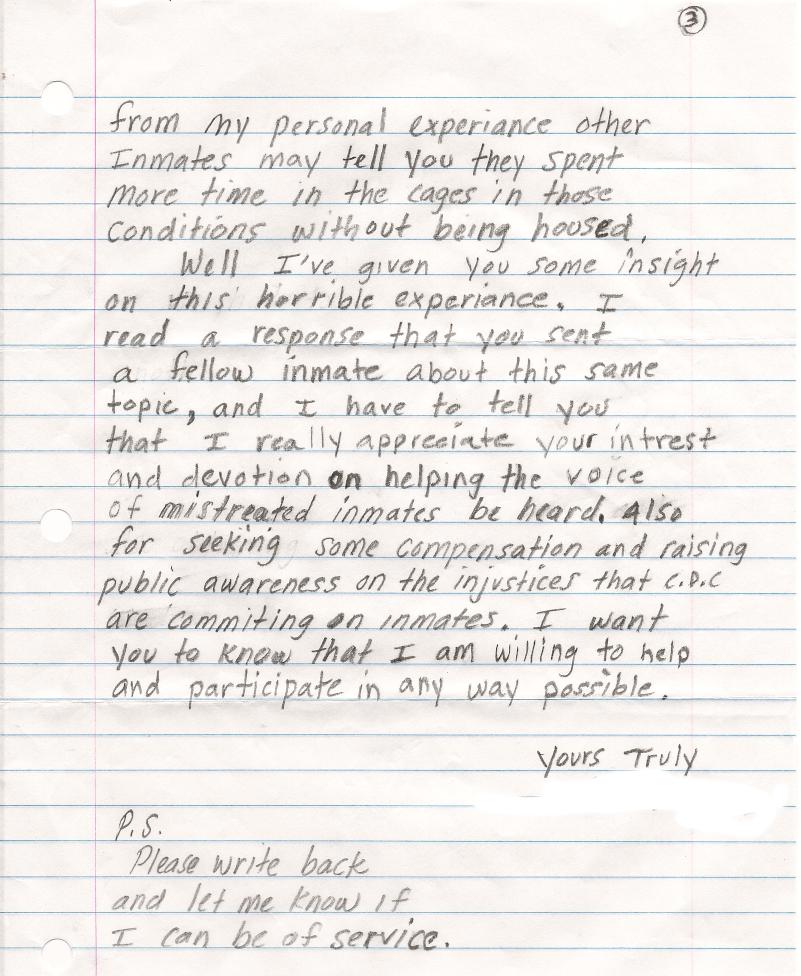 3
from my personal experiance other
Inmates may tell you they spent
more time in the cages in those
conditions without being housed.
Well I've given you some insight
on this horrible experiance. I
read a response that you sent
a fellow inmate about this same
topic, and I have to tell you
that I really appreciate your intrest
and devotion on helping the voice
of mistreated inmates be heard. Also
for seeking some compensation and raising
public awareness on the injustices that C.D.C
are commiting on inmates. I want
you to know that I am willing to help
and participate in any way possible.
Yours Truly
P.S.
Please write back
and let me know if
I can be of service.